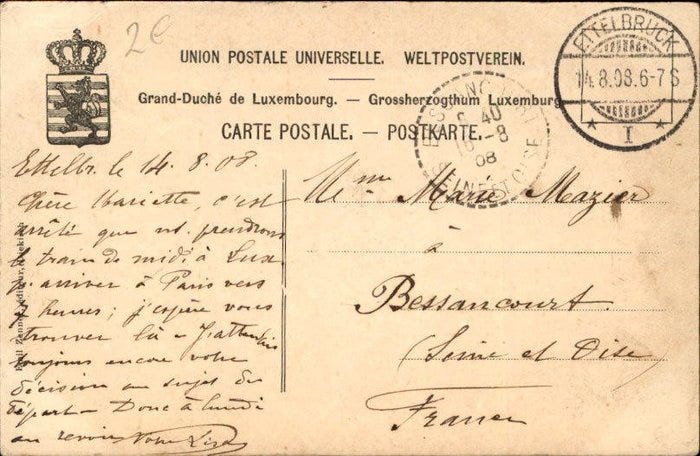 2€
UNION POSTALE UNIVERSELLE. WELTPOSTVEREIN.
Grand-Duché de Luxembourg. — Grossherzogthum Luxemburg
CARTE POSTALE. — POSTKARTE.
ETTELBRUCK
14.8.08.6-7S
* I *
BESSANCOURT
6 40
16-8
08
SEINE ET OISE
Ettelbr. le 14. 8. 08.
Chère Mariette, c'est
arrêté que ns. prendrons
le train de midi à Lux.
p. arriver à Paris vers
heures; j'espère vous
trouver là - J'attendais
toujours encore votre
décision au sujet du
départ - Donc à lundi
au revoir Votre Lisa
Mme Marie Mazier
à
Bessancourt.
Seine et Oise
France